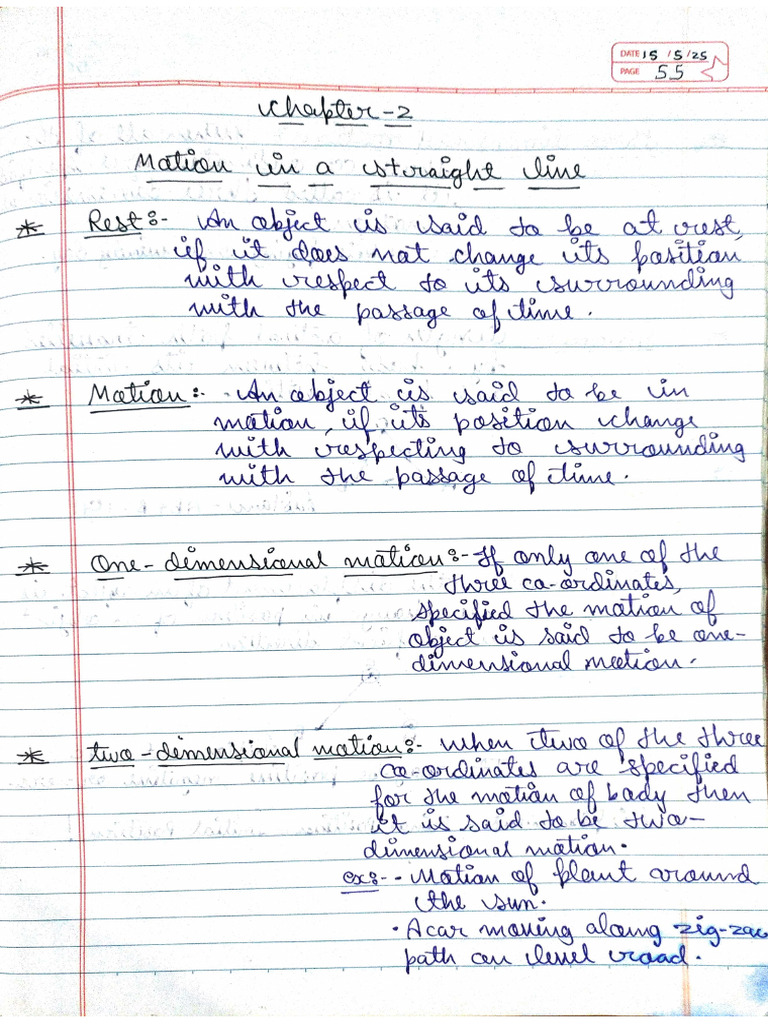 DATE 15 / 5 / 25
PAGE 55
Chapter-2
Motion in a straight line
* Rest:- An object is said to be at rest,
if it does not change its position
with respect to its surrounding
with the passage of time.
* Motion:- An object is said to be in
motion, if its position change
with respecting to surrounding
with the passage of time.
* One-dimensional motion:- If only one of the
three co-ordinates,
specified the motion of
object is said to be one-
dimensional motion.
* two-dimensional motion:- When two of the three
co-ordinates are specified
for the motion of body then
it is said to be two-
dimensional motion.
ex:- • Motion of plant around
the sun.
• A car moving along zig-zac
path on level road.